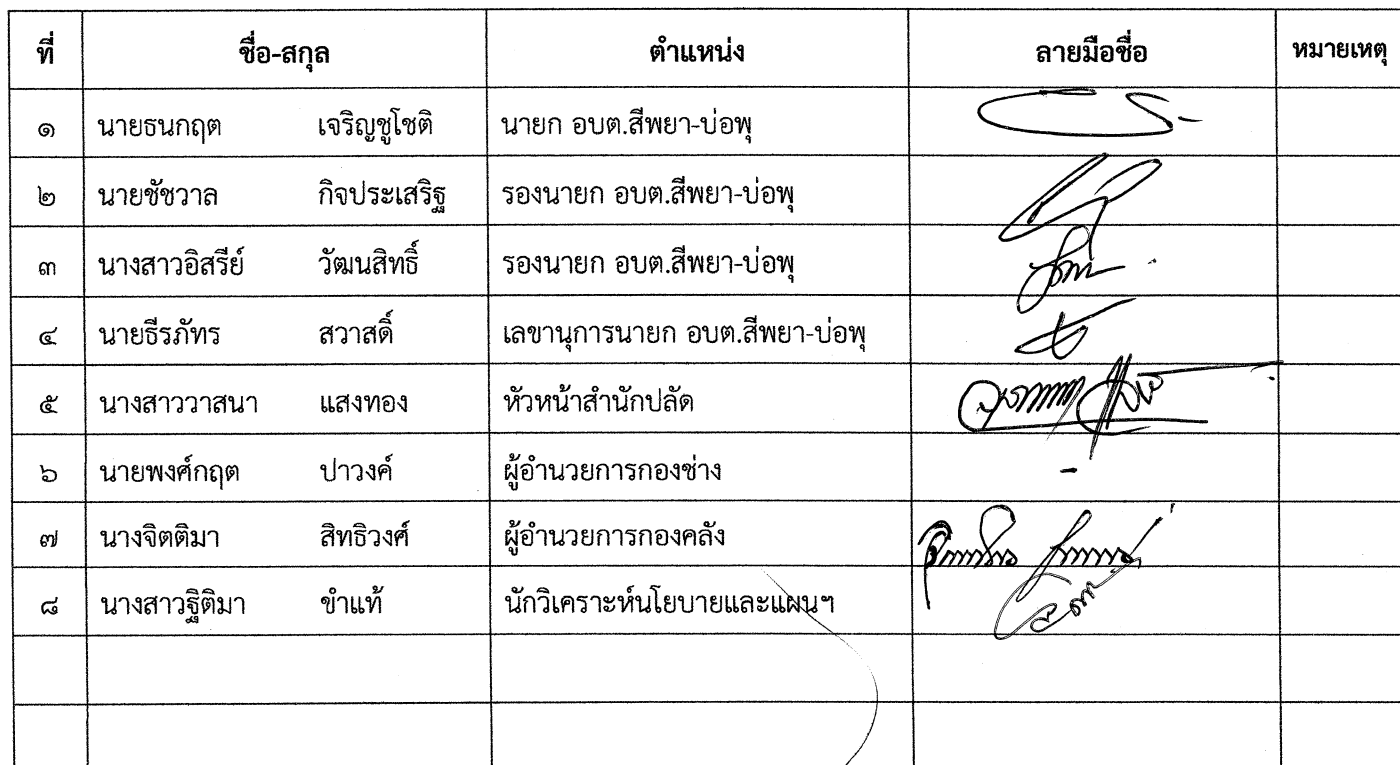 ที่ ชื่อ-สกุล ตำแหน่ง ลายมือชื่อ หมายเหตุ
๑ นายธนกฤต เจริญชูโชติ นายก อบต.สีพยา-บ่อพุ
๒ นายชัชวาล กิจประเสริฐ รองนายก อบต.สีพยา-บ่อพุ
๓ นางสาวอิสรีย์ วัฒนสิทธิ์ รองนายก อบต.สีพยา-บ่อพุ
๔ นายธีรภัทร สวาสดิ์ เลขานุการนายก อบต.สีพยา-บ่อพุ
๕ นางสาววาสนา แสงทอง หัวหน้าสำนักปลัด
๖ นายพงศ์กฤต ปาวงค์ ผู้อำนวยการกองช่าง -
๗ นางจิตติมา สิทธิวงศ์ ผู้อำนวยการกองคลัง
๘ นางสาวฐิติมา ขำแท้ นักวิเคราะห์นโยบายและแผนฯ